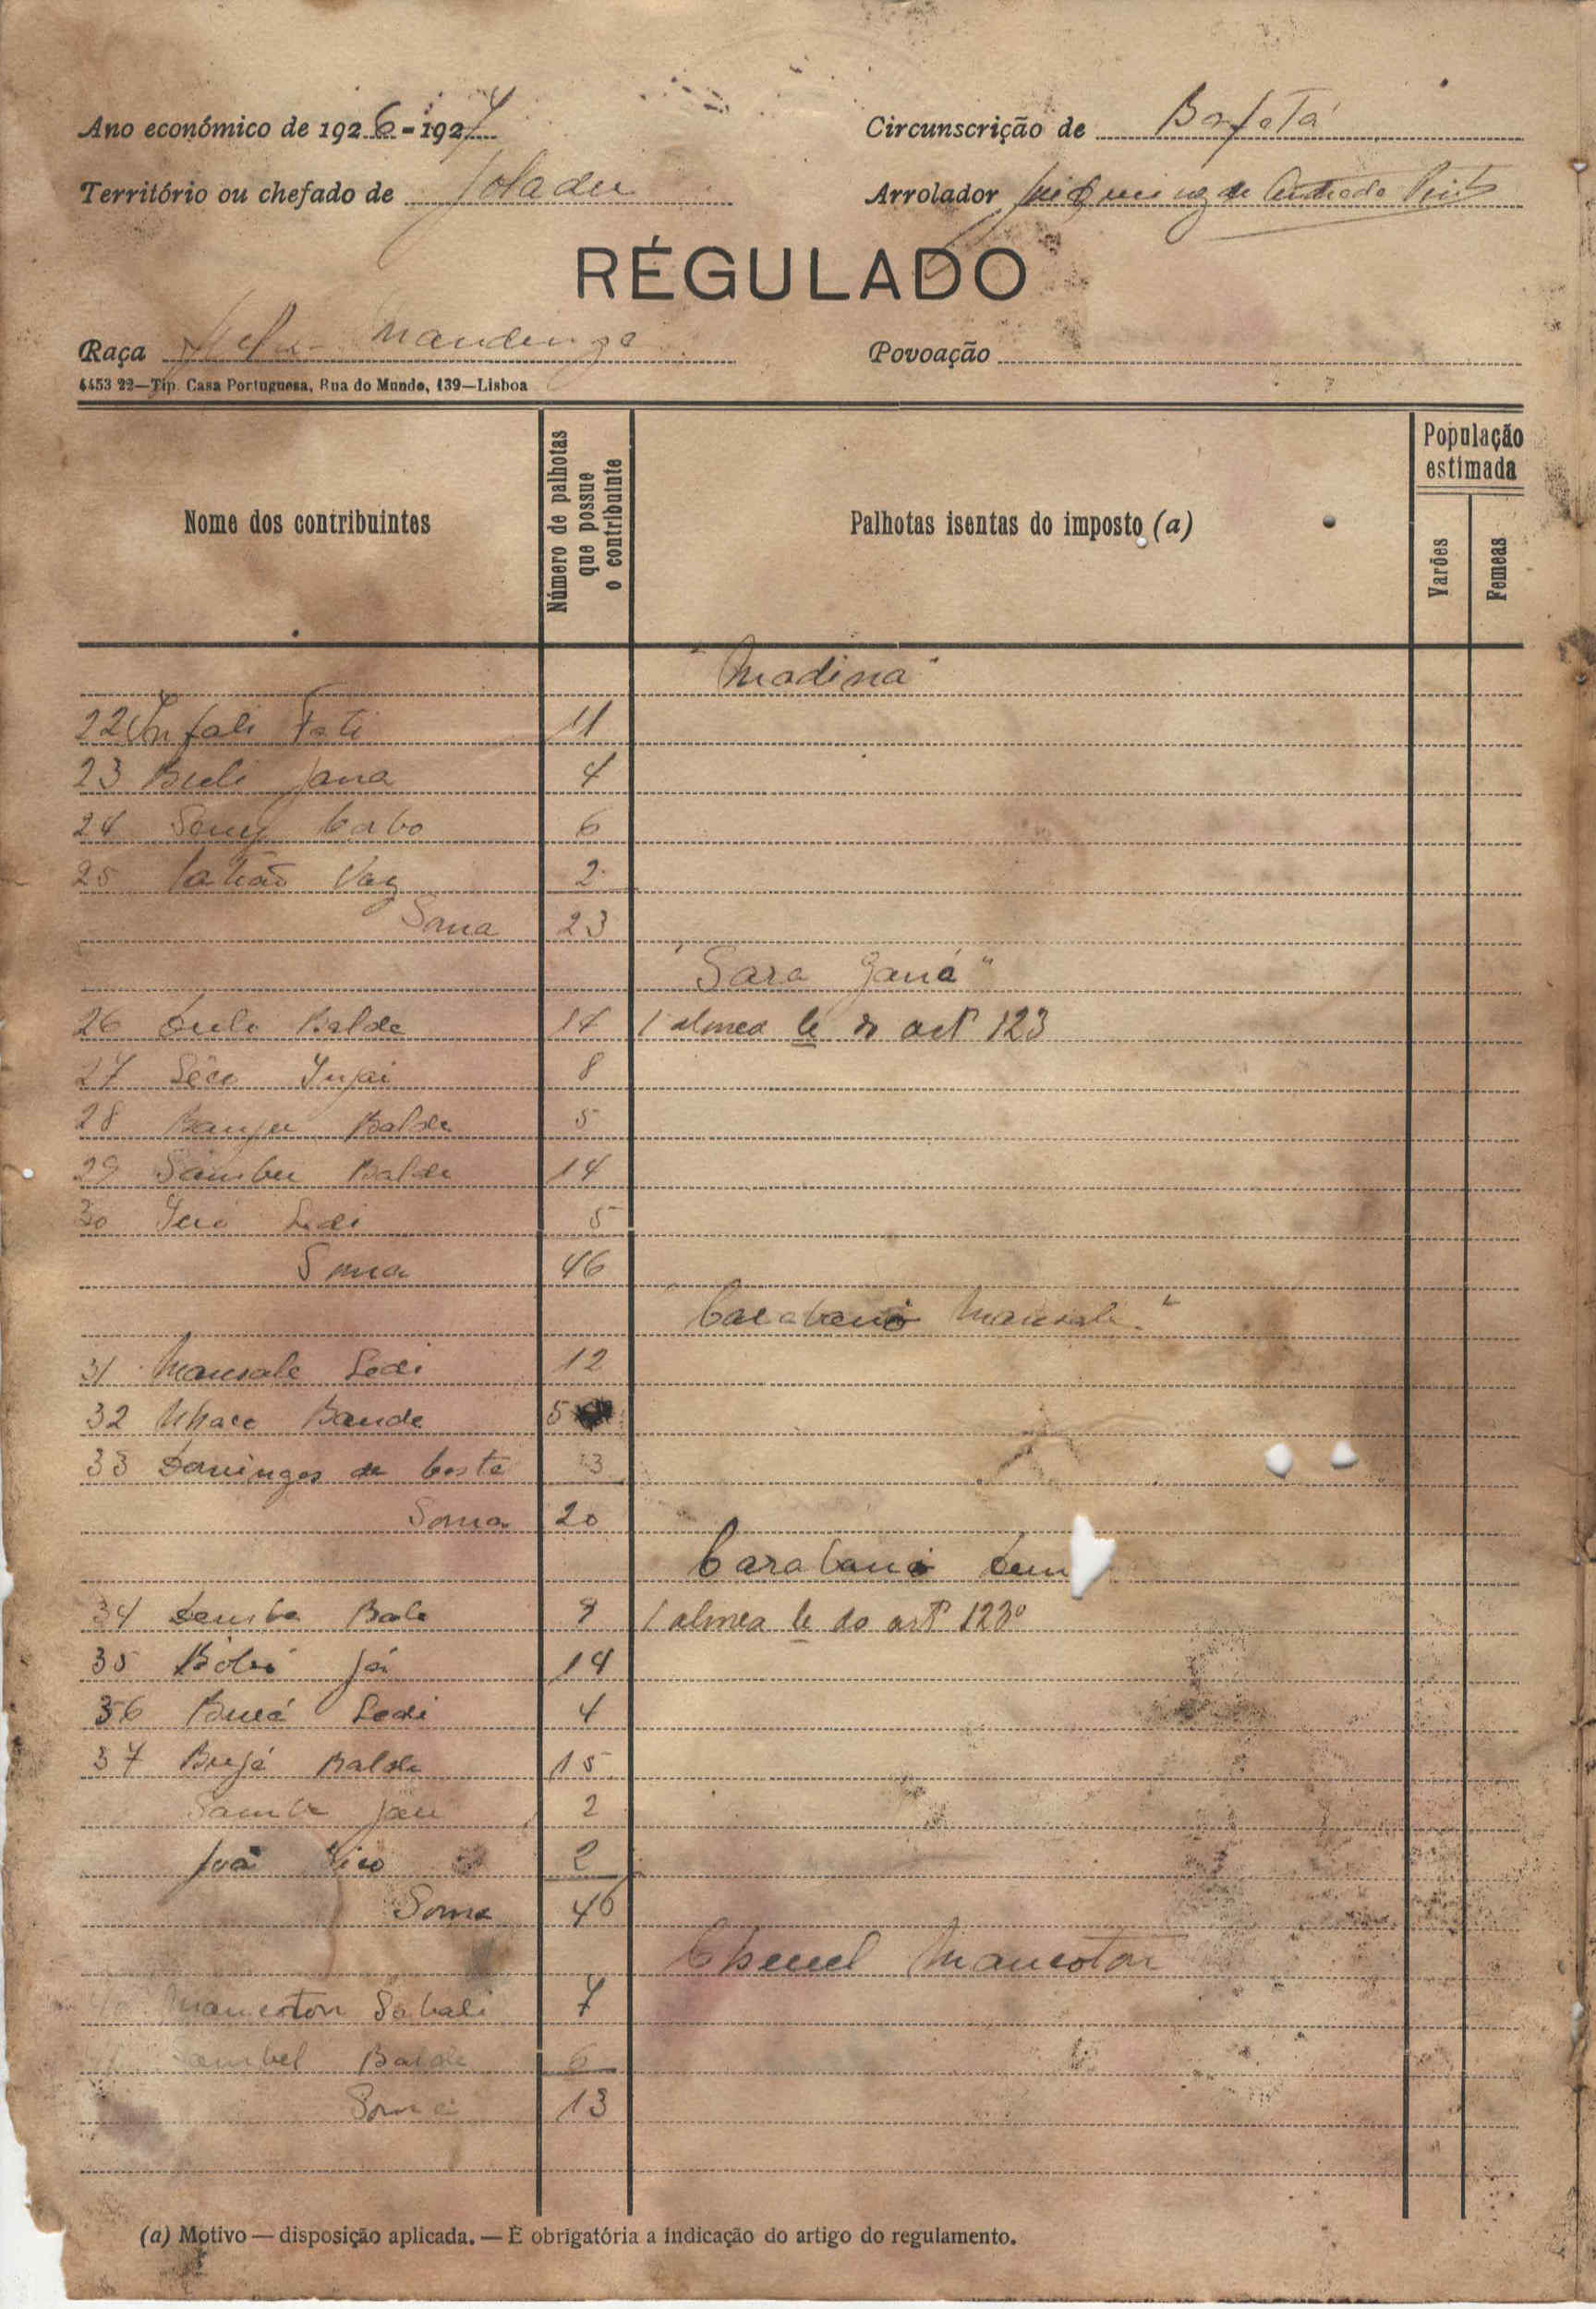 Ano económico de 1926-1927
Circunscrição de Bafatá
Território ou chefado de Joladu
Arrolador de Andrade Pinto
RÉGULADO
Raça Mandinga
Povoação
4453 22—Tip. Casa Portuguesa, Rua do Mundo, 139—Lisboa
Nome dos contribuintes
Número de palhotas que possue o contribuinte
Palhotas isentas do imposto (a)
População estimada
Varões
Femeas
"Madina"
22 Infali Fati 11
23 Buli Jana 4
24 Cabo 6
25 Vaz 2
Soma 23
"Sara Ganá"
26 Dulo Balde 14 1 alinea b do artº 123
27 Séco Injai 8
28 Banju Balde 5
29 Sambu Balde 14
30 Sedi 5
Soma 46
Mansale"
31 Mansale Sedi 12
32 Bande 5
33 Domingos da Costa 3
Soma 20
34 Demba Balde 9 1 alinea b do artº 123º
35 Já 14
36 Sedi 4
37 Balde 15
Samba Jau 2
João 2
Soma 46
Mancoton
Mancoton Sabali 7
Sambel Balde 6
Soma 13
(a) Motivo — disposição aplicada. — É obrigatória a indicação do artigo do regulamento.